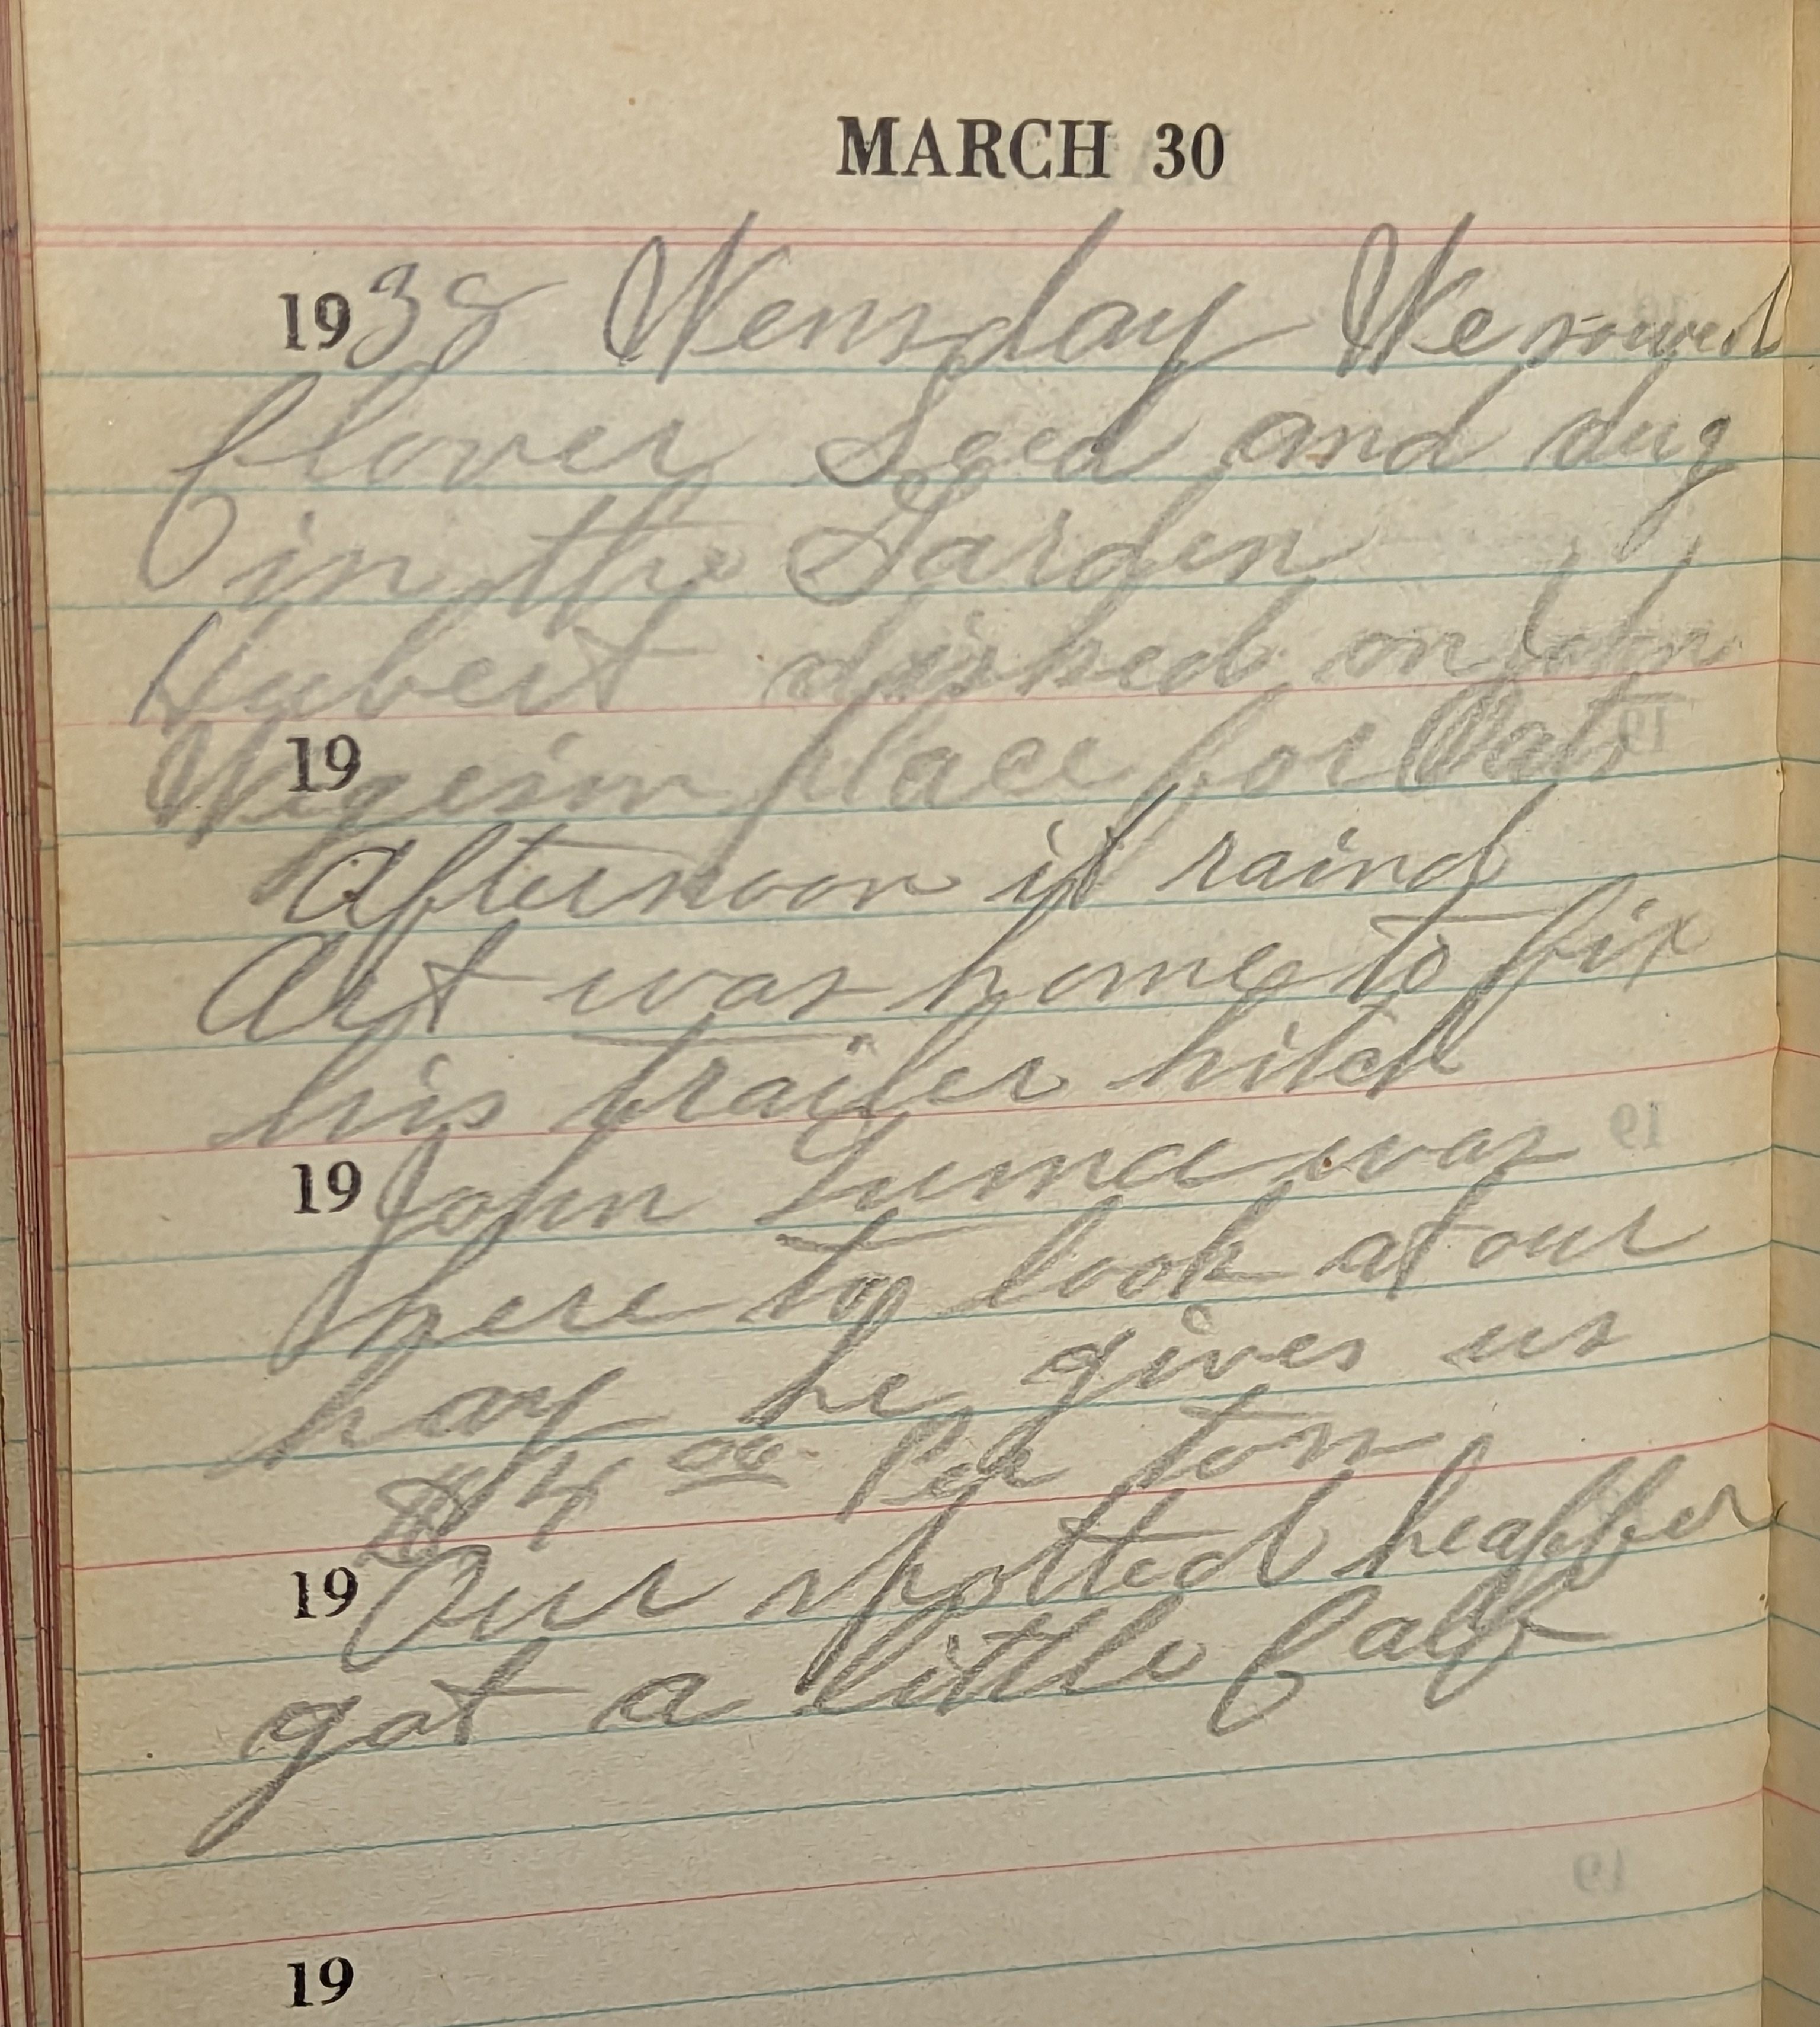 MARCH 30
1938 Wensday We sowed
Clover Seed and dug
in the Garden
Hubert disked on John
19 place for Oats
Afternoon it raind
Art was home to fix
his trailer hitch
19 John was
here to look at our
hay he gives us
$4 00 Per ton
19 Our spotted heaffer
got a little Calf
19